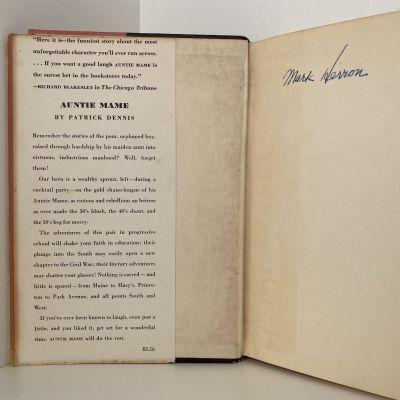 "Here it is—the funniest story about the most
unforgettable character you'll ever run across.
. . . If you want a good laugh AUNTIE MAME is
the surest bet in the bookstores today."
—RICHARD BLAKESLEY in The Chicago Tribune
AUNTIE MAME
BY PATRICK DENNIS
Remember the stories of the poor, orphaned boy,
raised through hardship by his maiden aunt into
virtuous, industrious manhood? Well, forget
them!
Our hero is a wealthy sprout, left—during a
cocktail party—on the gold chaise-longue of his
Auntie Mame, as riotous and rebellious an heiress
as ever made the 30's blush, the 40's shout, and
the 50's beg for mercy.
The adventures of this pair in progressive
school will shake your faith in education; their
plunge into the South may easily open a new
chapter to the Civil War; their literary adventures
may shatter your glasses! Nothing is sacred—and
little is spared—from Maine to Macy's, Prince-
ton to Park Avenue, and all points South and
West.
If you've ever been known to laugh, even just a
little, and you liked it, get set for a wonderful
time. AUNTIE MAME will do the rest.
$3.50
Mark Herron